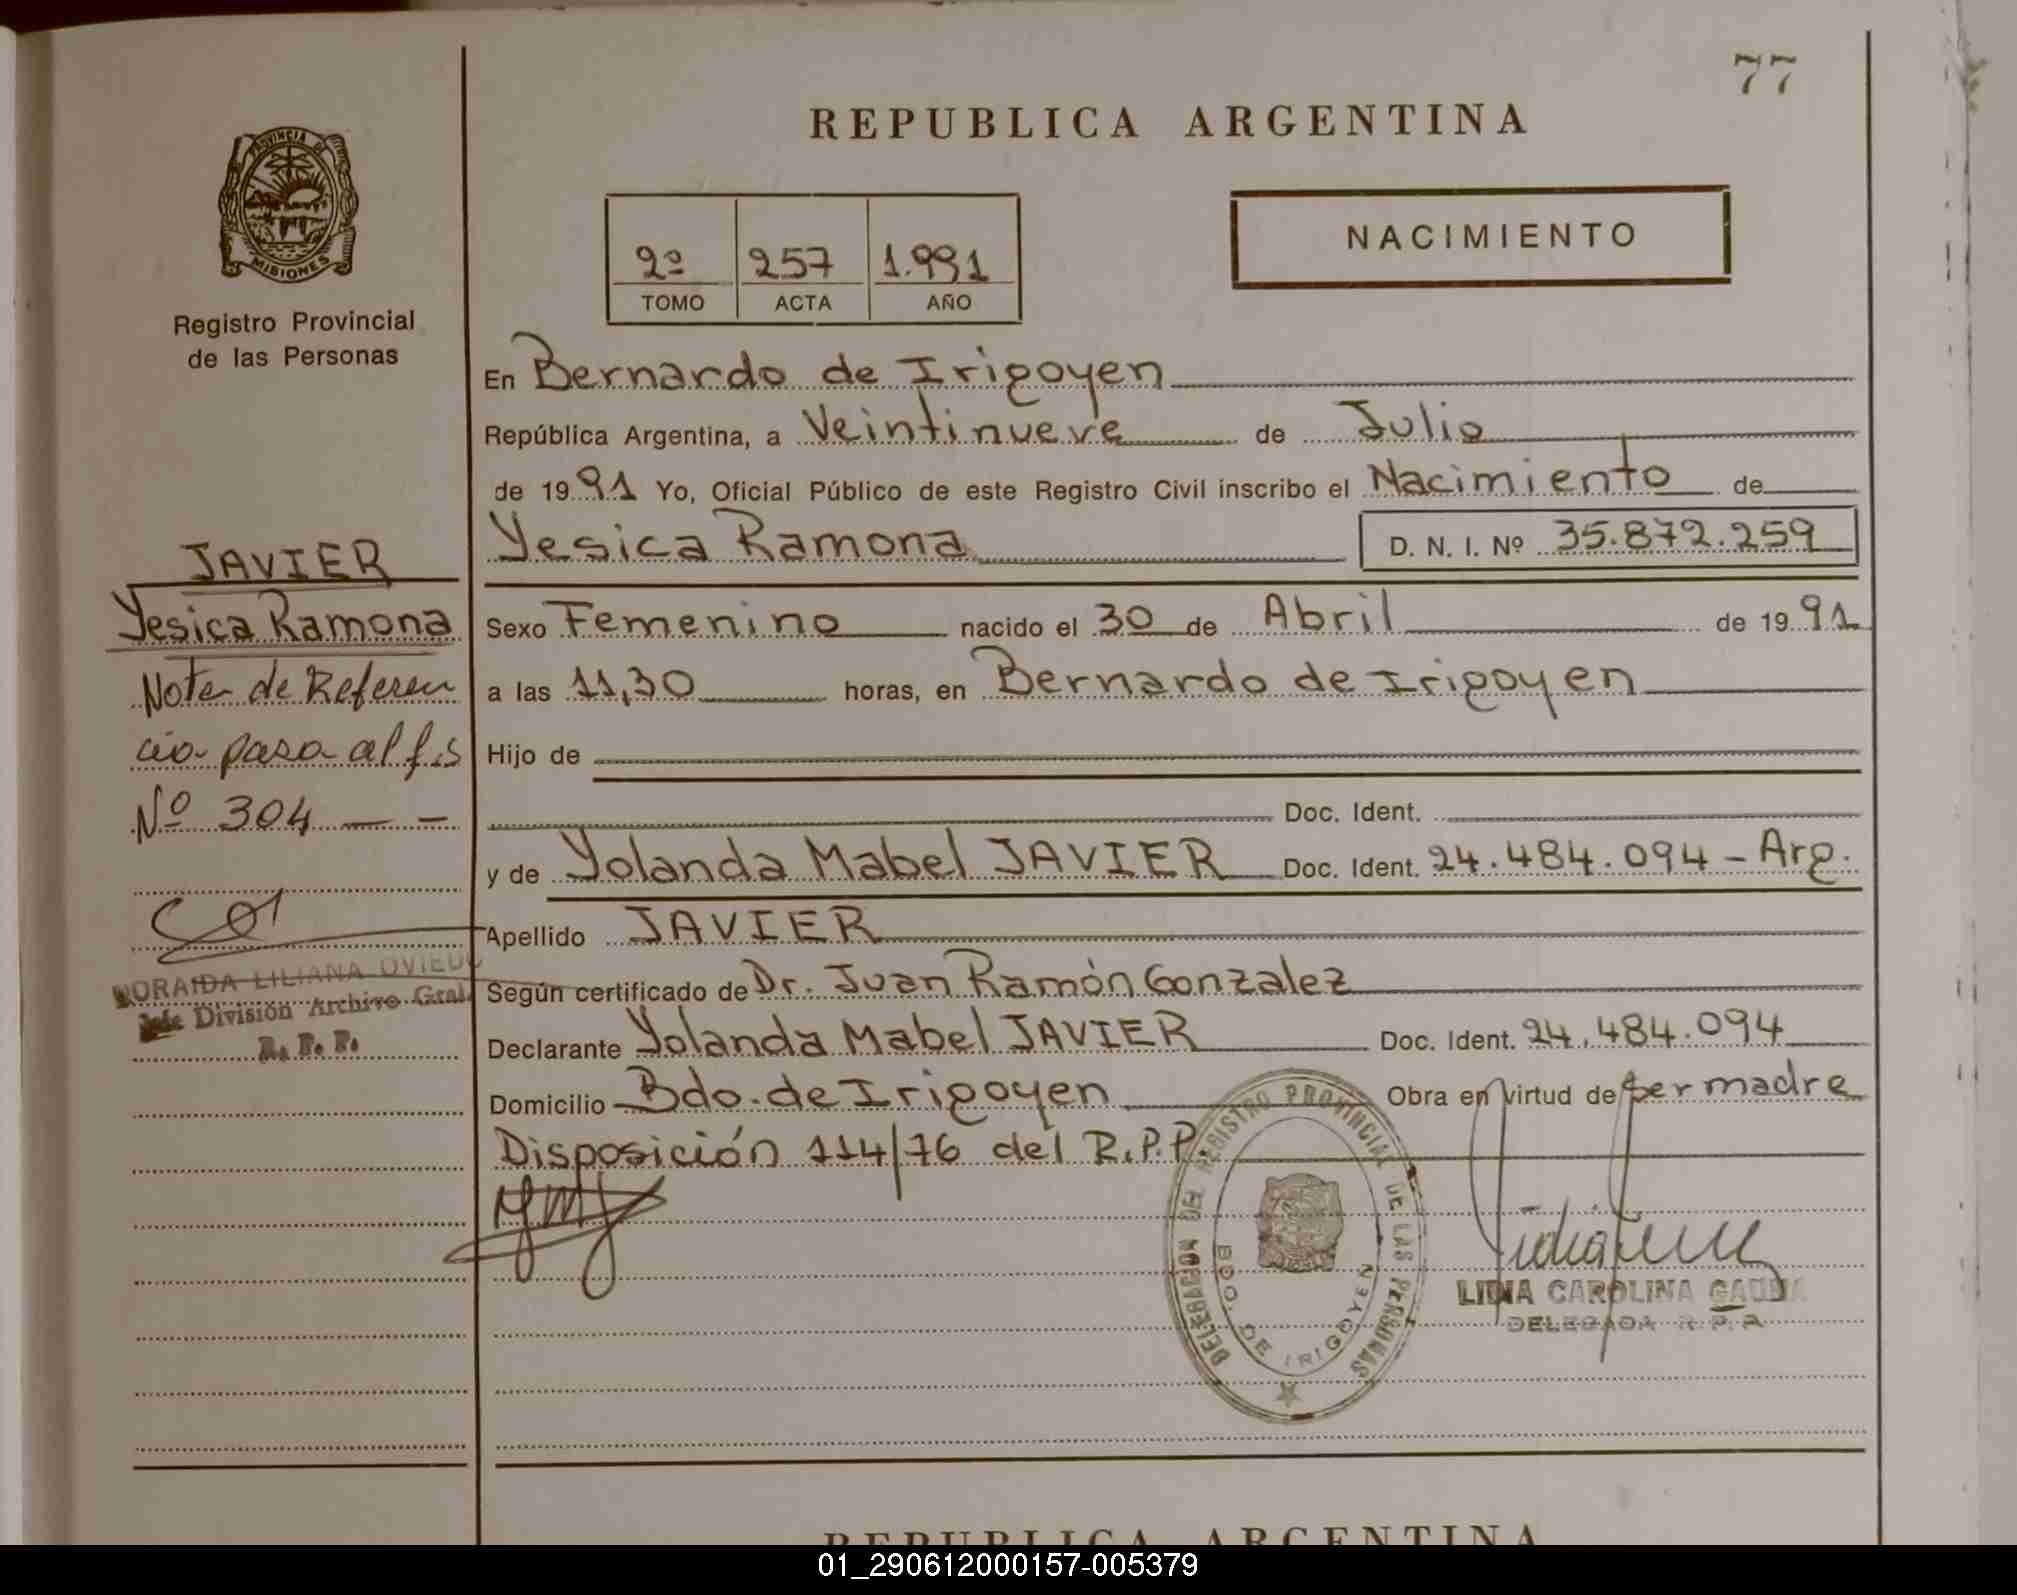 77
REPUBLICA ARGENTINA
PROVINCIA DE
MISIONES
Registro Provincial
de las Personas
2º 257 1.991
TOMO ACTA AÑO
NACIMIENTO
En Bernardo de Irigoyen
República Argentina, a Veintinueve de Julio
de 1991 Yo, Oficial Público de este Registro Civil inscribo el Nacimiento de
Yesica Ramona D. N. I. Nº 35.872.259
JAVIER
Yesica Ramona
Nota de Referen
cia pasa al f.s
Nº 304 — –
NORAIDA LILIANA OVIEDO
Jefe División Archivo Gral.
R. P. P.
Sexo Femenino nacido el 30 de Abril de 1991
a las 11,30 horas, en Bernardo de Irigoyen
Hijo de
Doc. Ident.
y de Yolanda Mabel JAVIER Doc. Ident. 24.484.094 – Arg.
Apellido JAVIER
Según certificado de Dr. Juan Ramón Gonzalez
Declarante Yolanda Mabel JAVIER Doc. Ident. 24.484.094
Domicilio Bdo. de Irigoyen Obra en virtud de ser madre
Disposición 114/76 del R.P.P.
DELEGACION DEL REGISTRO PROVINCIAL DE LAS PERSONAS
BDO. DE IRIGOYEN
LIDIA CAROLINA
DELEGADA R. P. P.
REPUBLICA ARGENTINA
01_290612000157-005379